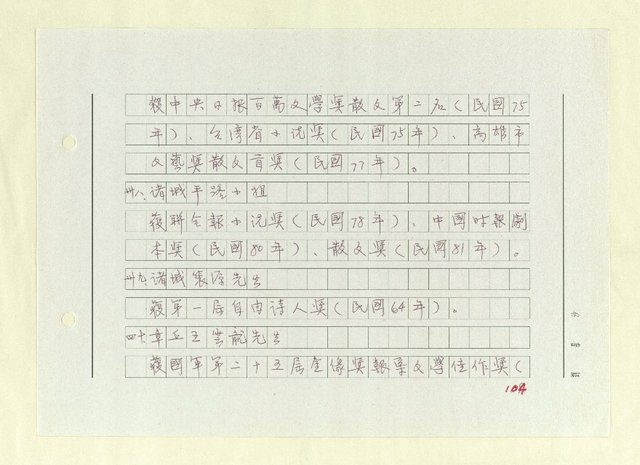 獲中央日報百萬文學獎散文第二名(民國75
年)、台湾省小說獎(民國75年)、高雄市
文藝獎散文首獎(民國77年)。
卅八、諸城平路小姐
獲聯合報小說獎(民國78年)、中國时報劇
本獎(民國80年)、散文獎(民國81年)。
卅九諸城 先生
獲第一屆自由诗人獎(民國64年)。
四十章丘王 先生
獲國軍第二十五屆金像獎報業文學佳作獎(
104